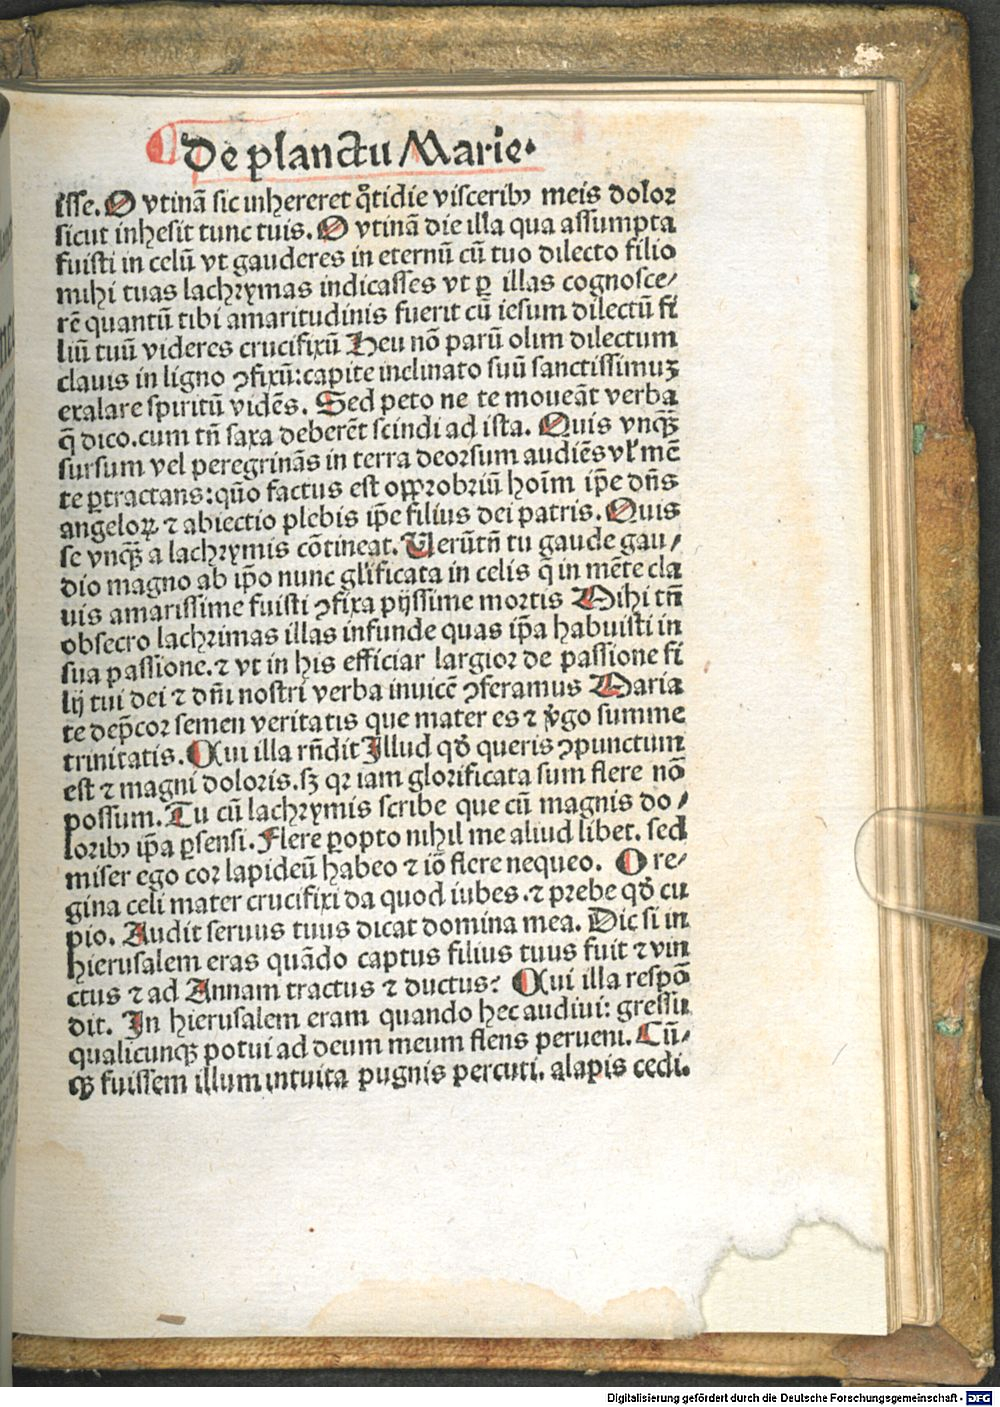 De planctu Marie.
isse. O vtinā sic inhereret q̄tidie visceribꝫ meis dolor
sicut inhesit tunc tuis. O vtinā die illa qua assumpta
fuisti in celū vt gauderes in eternū cū tuo dilecto filio
mihi tuas lachrymas indicasses vt ꝑ illas cognosce⸗
rē quantū tibi amaritudinis fuerit cū iesum dilectū fi
liū tuū videres crucifixū Heu nō parū olim dilectum
clauis in ligno ꝯfixū: capite inclinato suū sanctissimuꝫ
exalare spiritū vidēs. Sed peto ne te moueāt verba
q̄ dico. cum tn̄ saxa deberēt scindi ad ista. Quis vnqꝫ
sursum vel peregrinās in terra deorsum audiēs vl̓ mē
te ꝑtractans: quō factus est opprobriū hoīm ip̄e dn̄s
angeloꝝ ⁊ abiectio plebis ip̄e filius dei patris. Quis
se vnqꝫ a lachrymis cōtineat. Uerūtn̄ tu gaude gau⸗
dio magno ab ip̄o nunc gl̓ificata in celis q̄ in mēte cla
uis amarissime fuisti ꝯfixa pijssime mortis Mihi tn̄
obsecro lachrimas illas infunde quas ip̄a habuisti in
sua passione. ⁊ vt in his efficiar largior de passione fi
lij tui dei ⁊ dn̄i nostri verba inuicē ꝯferamus Maria
te dep̄cor semen veritatis que mater es ⁊ v̓go summe
trinitatis. Cui illa rn̄dit Illud qđ queris ꝯpunctum
est ⁊ magni doloris. sꝫ qr iam glorificata sum flere nō
possum. Tu cū lachrymis scribe que cū magnis do⸗
loribꝫ ip̄a ꝑsensi. Flere ꝓopto nihil me aliud libet. sed
miser ego cor lapideū habeo ⁊ iō flere nequeo. O re⸗
gina celi mater crucifixi da quod iubes. ⁊ prebe qđ cu
pio. Audit seruus tuus dicat domina mea. Dic si in
hierusalem eras quādo captus filius tuus fuit ⁊ vin
ctus ⁊ ad Annam tractus ⁊ ductus? Cui illa respō
dit. In hierusalem eram quando hec audiui: gressu
qualicunqꝫ potui ad deum meum flens perueni. Cū⸗
qꝫ fuissem illum intuita pugnis percuti. alapis cedi.
Digitalisierung gefördert durch die Deutsche Forschungsgemeinschaft - DFG